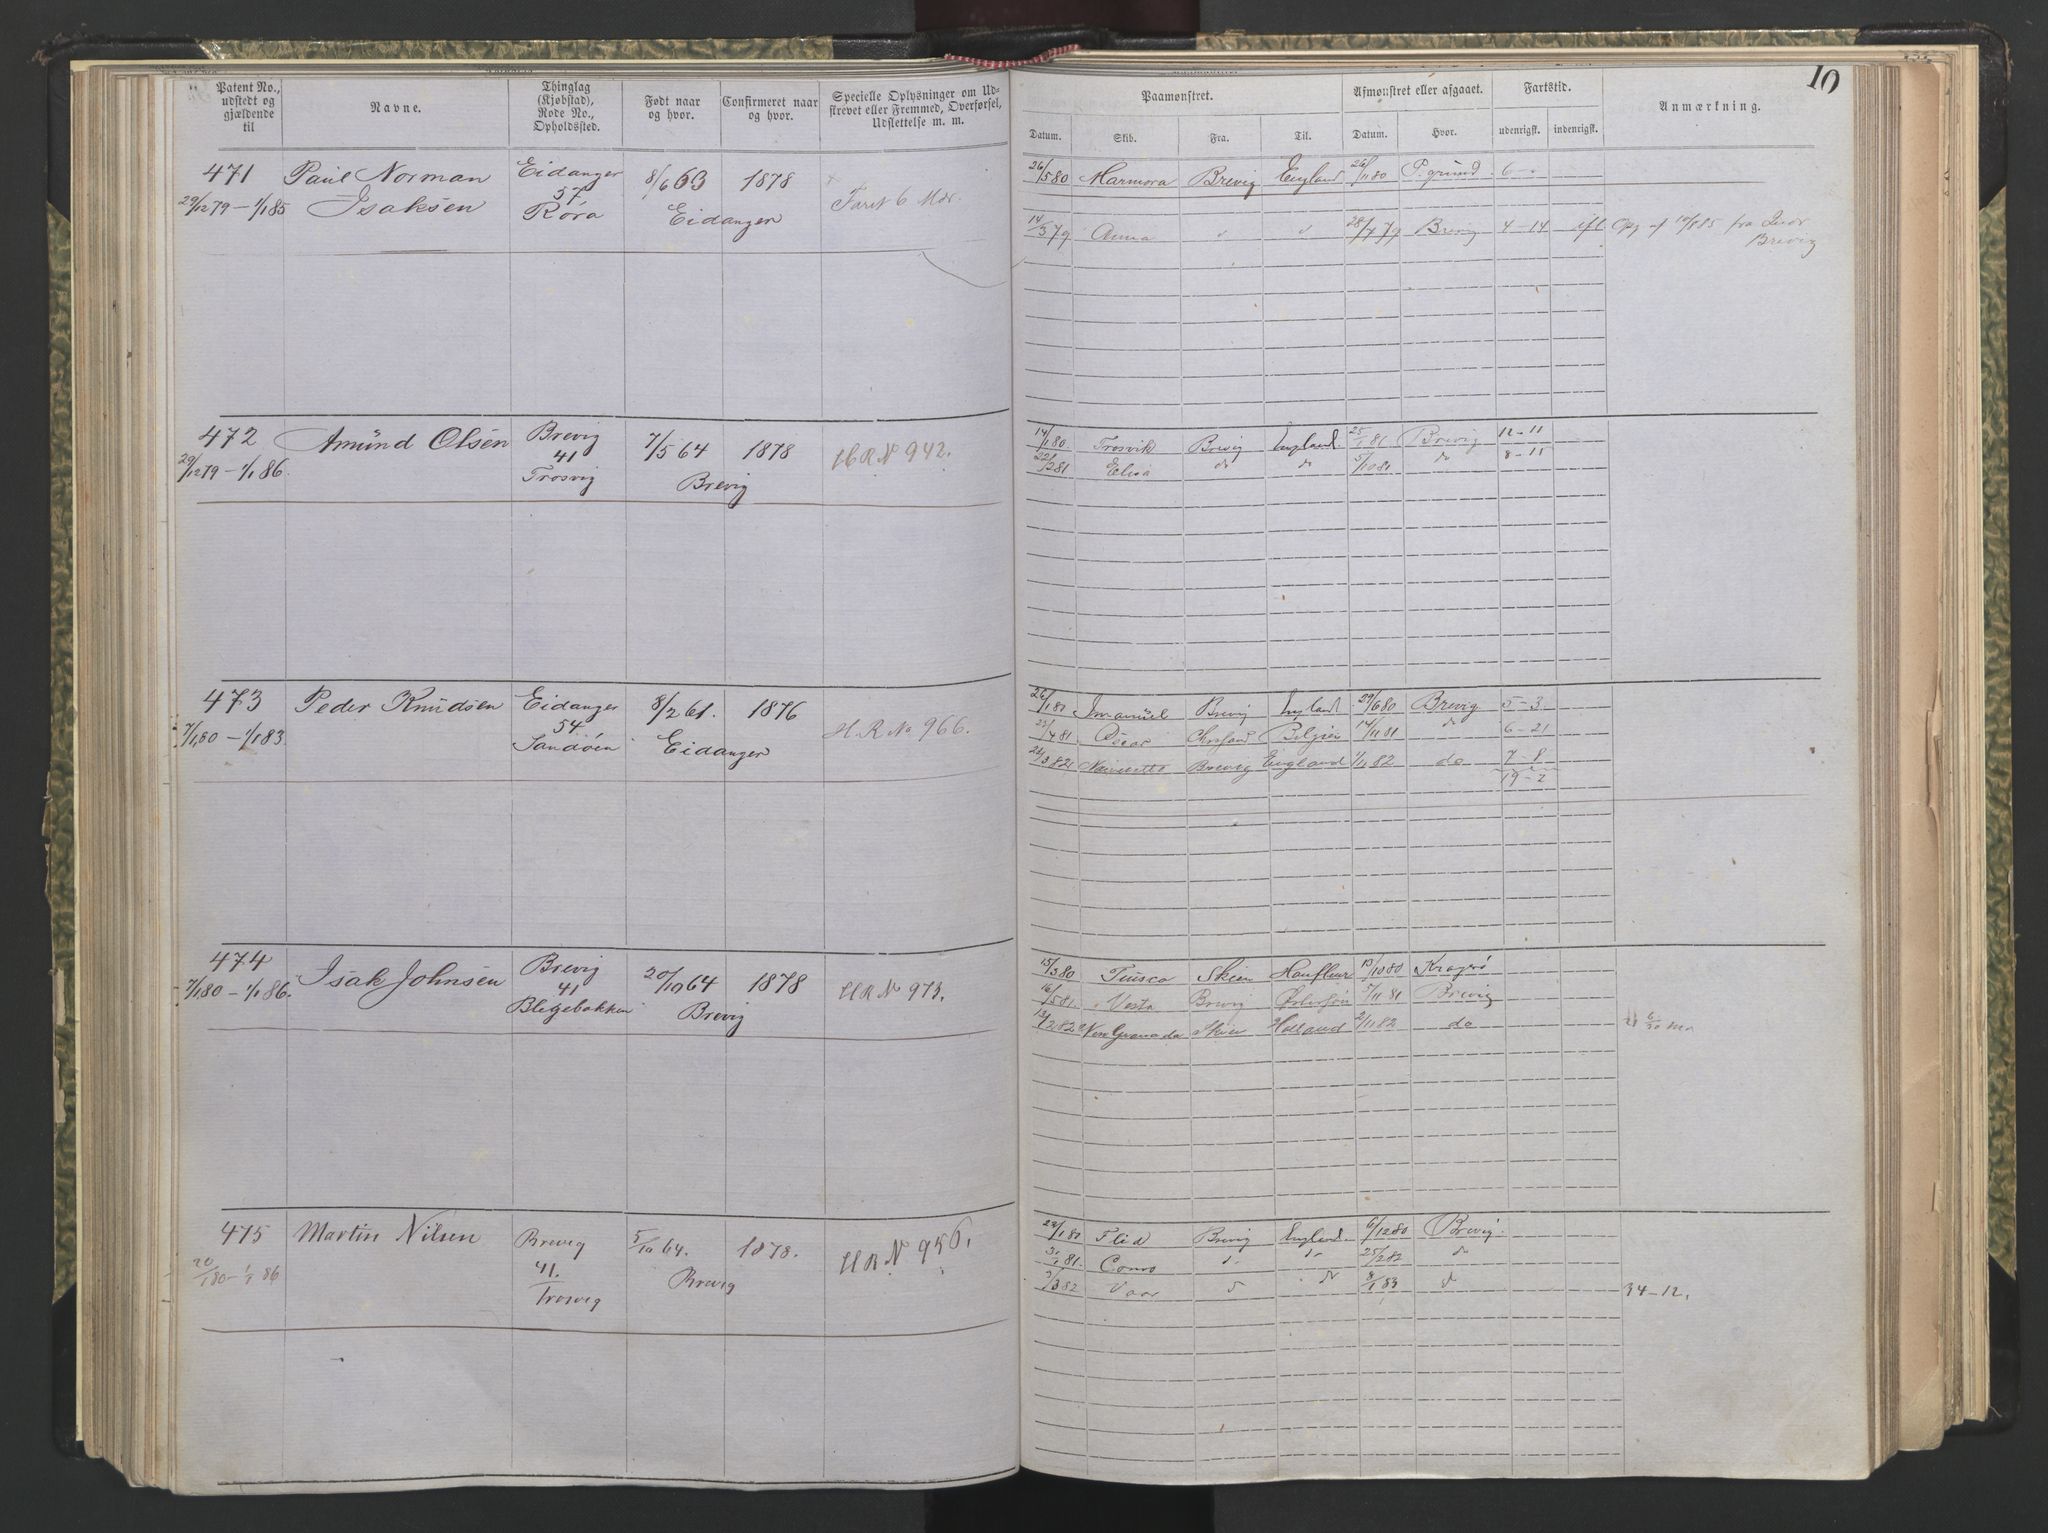 10
Patent No., udstedt og gjældende til
Navne.
Thinglag (Kjøbstad), Rode No., Opholdssted.
Født naar og hvor.
Confirmeret naar og hvor.
Specielle Oplysninger om Udskrevet eller Fremmed, Overførsel, Udslettelse m. m.
Paamønstret.
Afmønstret eller afgaaet.
Fartstid.
Anmærkning.
Datum. Skib. Fra. Til. Datum. Hvor. udenrigsk. indenrigsk.
471 Paul Norman Eidanger 8/6 63 1878
29/12 79 – 1/1 85 Isaksen 57 Røra Eidanger Faret 6 Mdr.
26/5 80 Marmora Brevig England 26/11 80 P.grund 6 –
14/3 79 Anna 28/7 79 Brevig 4 – 14 fra Brevig
472 Amünd Olsen Brevig 7/5 64 1878
29/12 79 – 1/1 86. 41 Trosvig Brevig H R N 942.
14/1 80 Trosvik Brevig England. 25/1 81 Brevig 12 – 11
22/2 81 Elisa do do 5/10 81 do 8 – 15
473 Peder Knudsen Eidanger 8/2 61. 1876
7/1 80 – 1/1 83 54 Sandöen Eidanger H. R. No 966.
26/1 80 Imanuel Brevig England 29/6 80 Brevig 5 – 3
25/4 81 Oscar Chrsand Belgien 14/11 81 do 6 – 21
22/3 82 Brevig England 1/11 82 do 7 – 8
19 – 2
474 Isak Johnsen Brevig 20/10 64 1878
7/1 80 – 1/1 86. 41 Blegebakken Brevig H R N 973.
15/3 80 Tuisco Skien Honfleur 13/10 80 Kragerö
16/5 81 Vesta Brevig Östersöen 5/11 81 Brevig
13/2 82 Granada Skien Holland 2/11 82 do
475 Martin Nilsen Brevig 5/10 64. 1878.
20/1 80 – 1/1 86 41. Trosvig Brevig H R N 956.
28/1 80 Flid Brevig England. 6/12 80 Brevig.
3/1 81. do 25/2 82 do
3/3 82 Vaar do do 8/1 83 do 34 – 12.